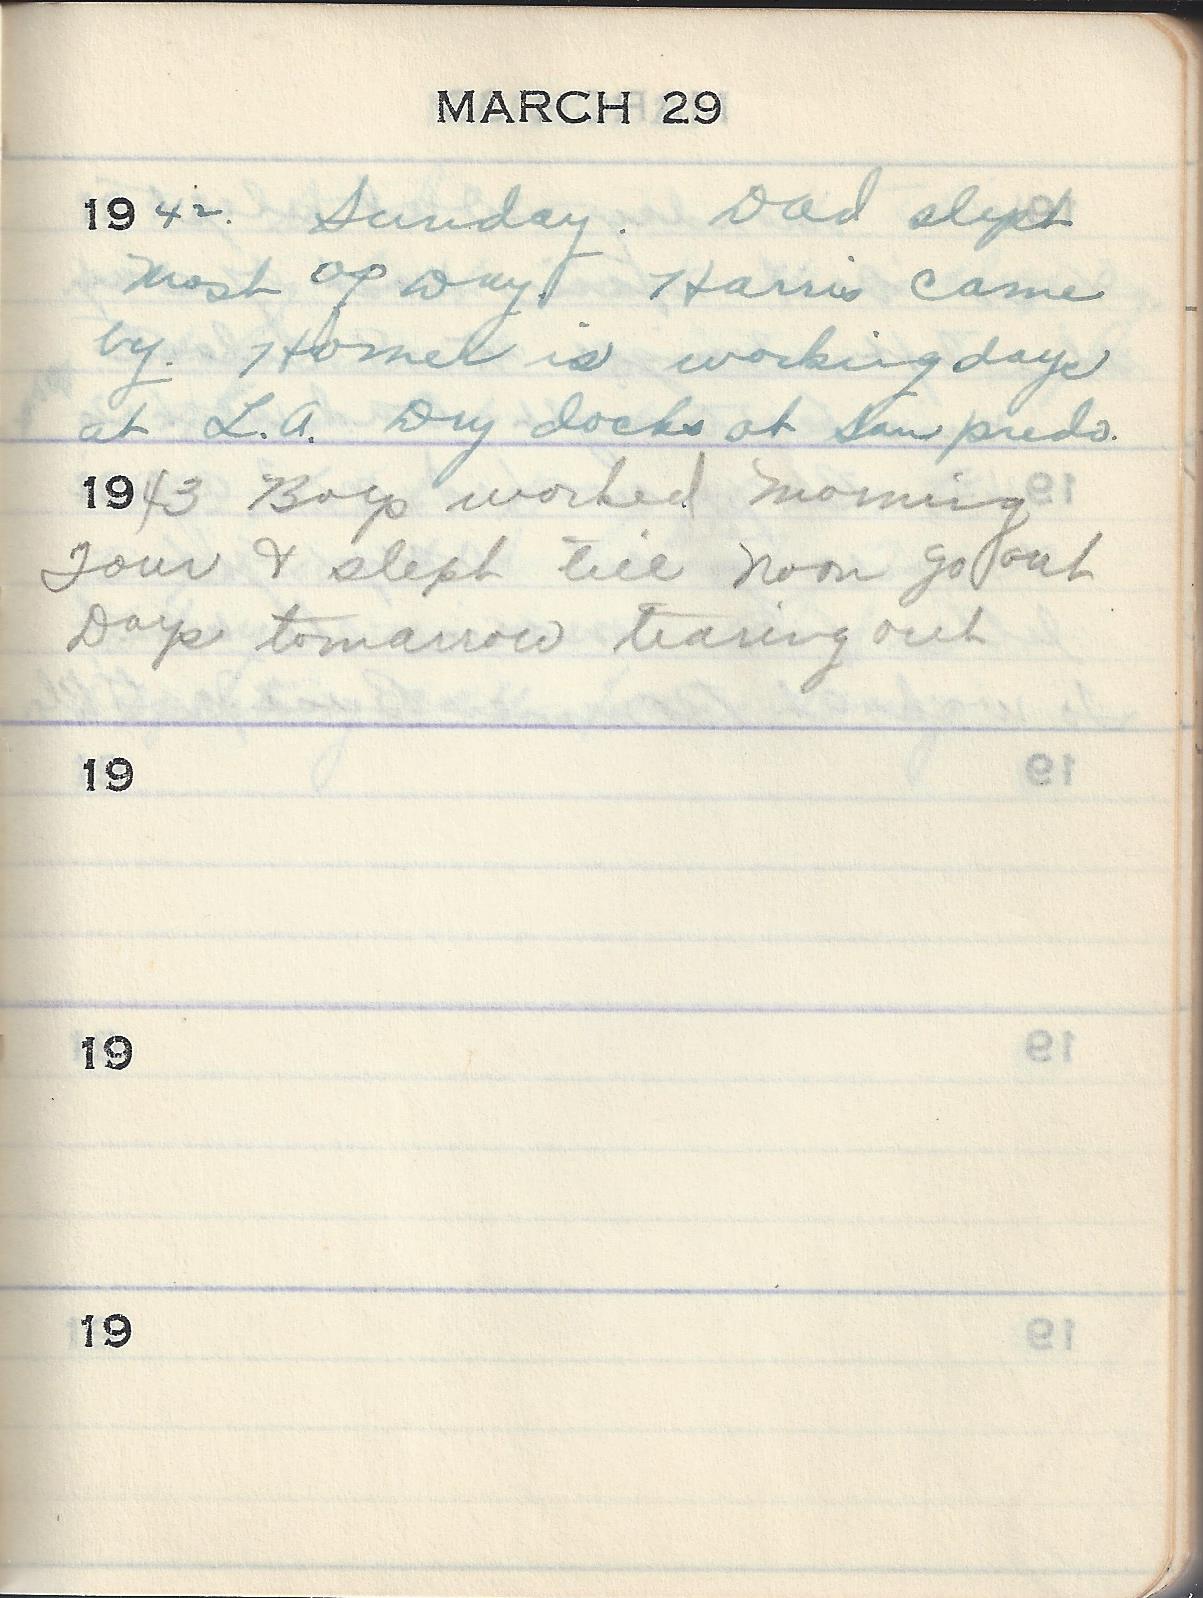 MARCH 29
19 42. Sunday. Dad slept
most of Day. Harris came
by. Homer is working days
at L.A. Dry docks at San predo.
1943 Boys worked Morning
Tour & slept till Noon go out
Days tomarrow tearing out
19
19
19